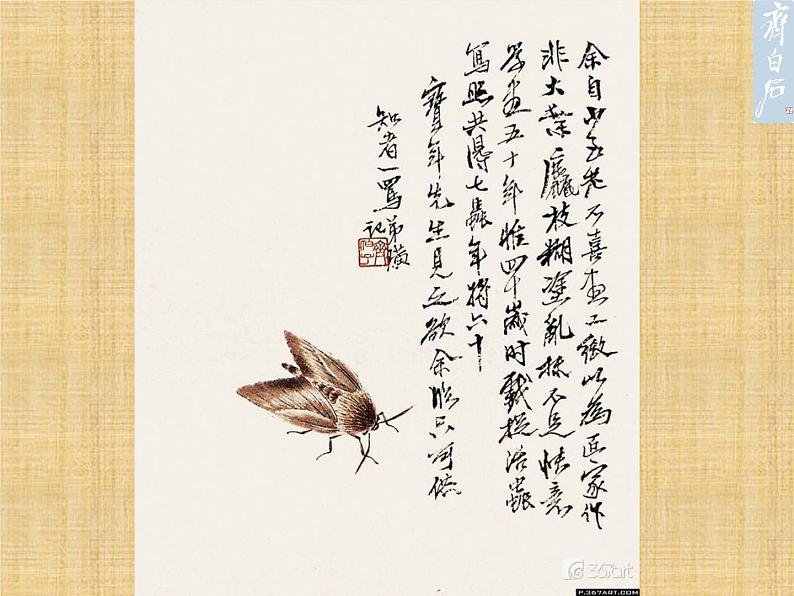 齊白石
余自少至老不喜畫工緻以為匠家作
非大葉麤枝糊塗亂抹不足快意
學畫五十年惟四十歲时戲捉活蟲
寫照共得七蟲年將六十
寶年先生見之欲余臨只可供
知者一罵弟璜
記
367art
P.367ART.COM